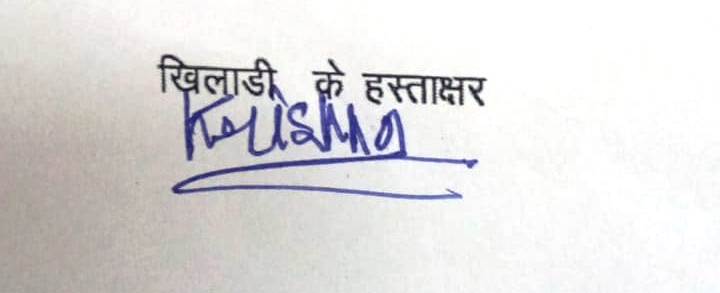 खिलाडी के हस्ताक्षर
Krishna